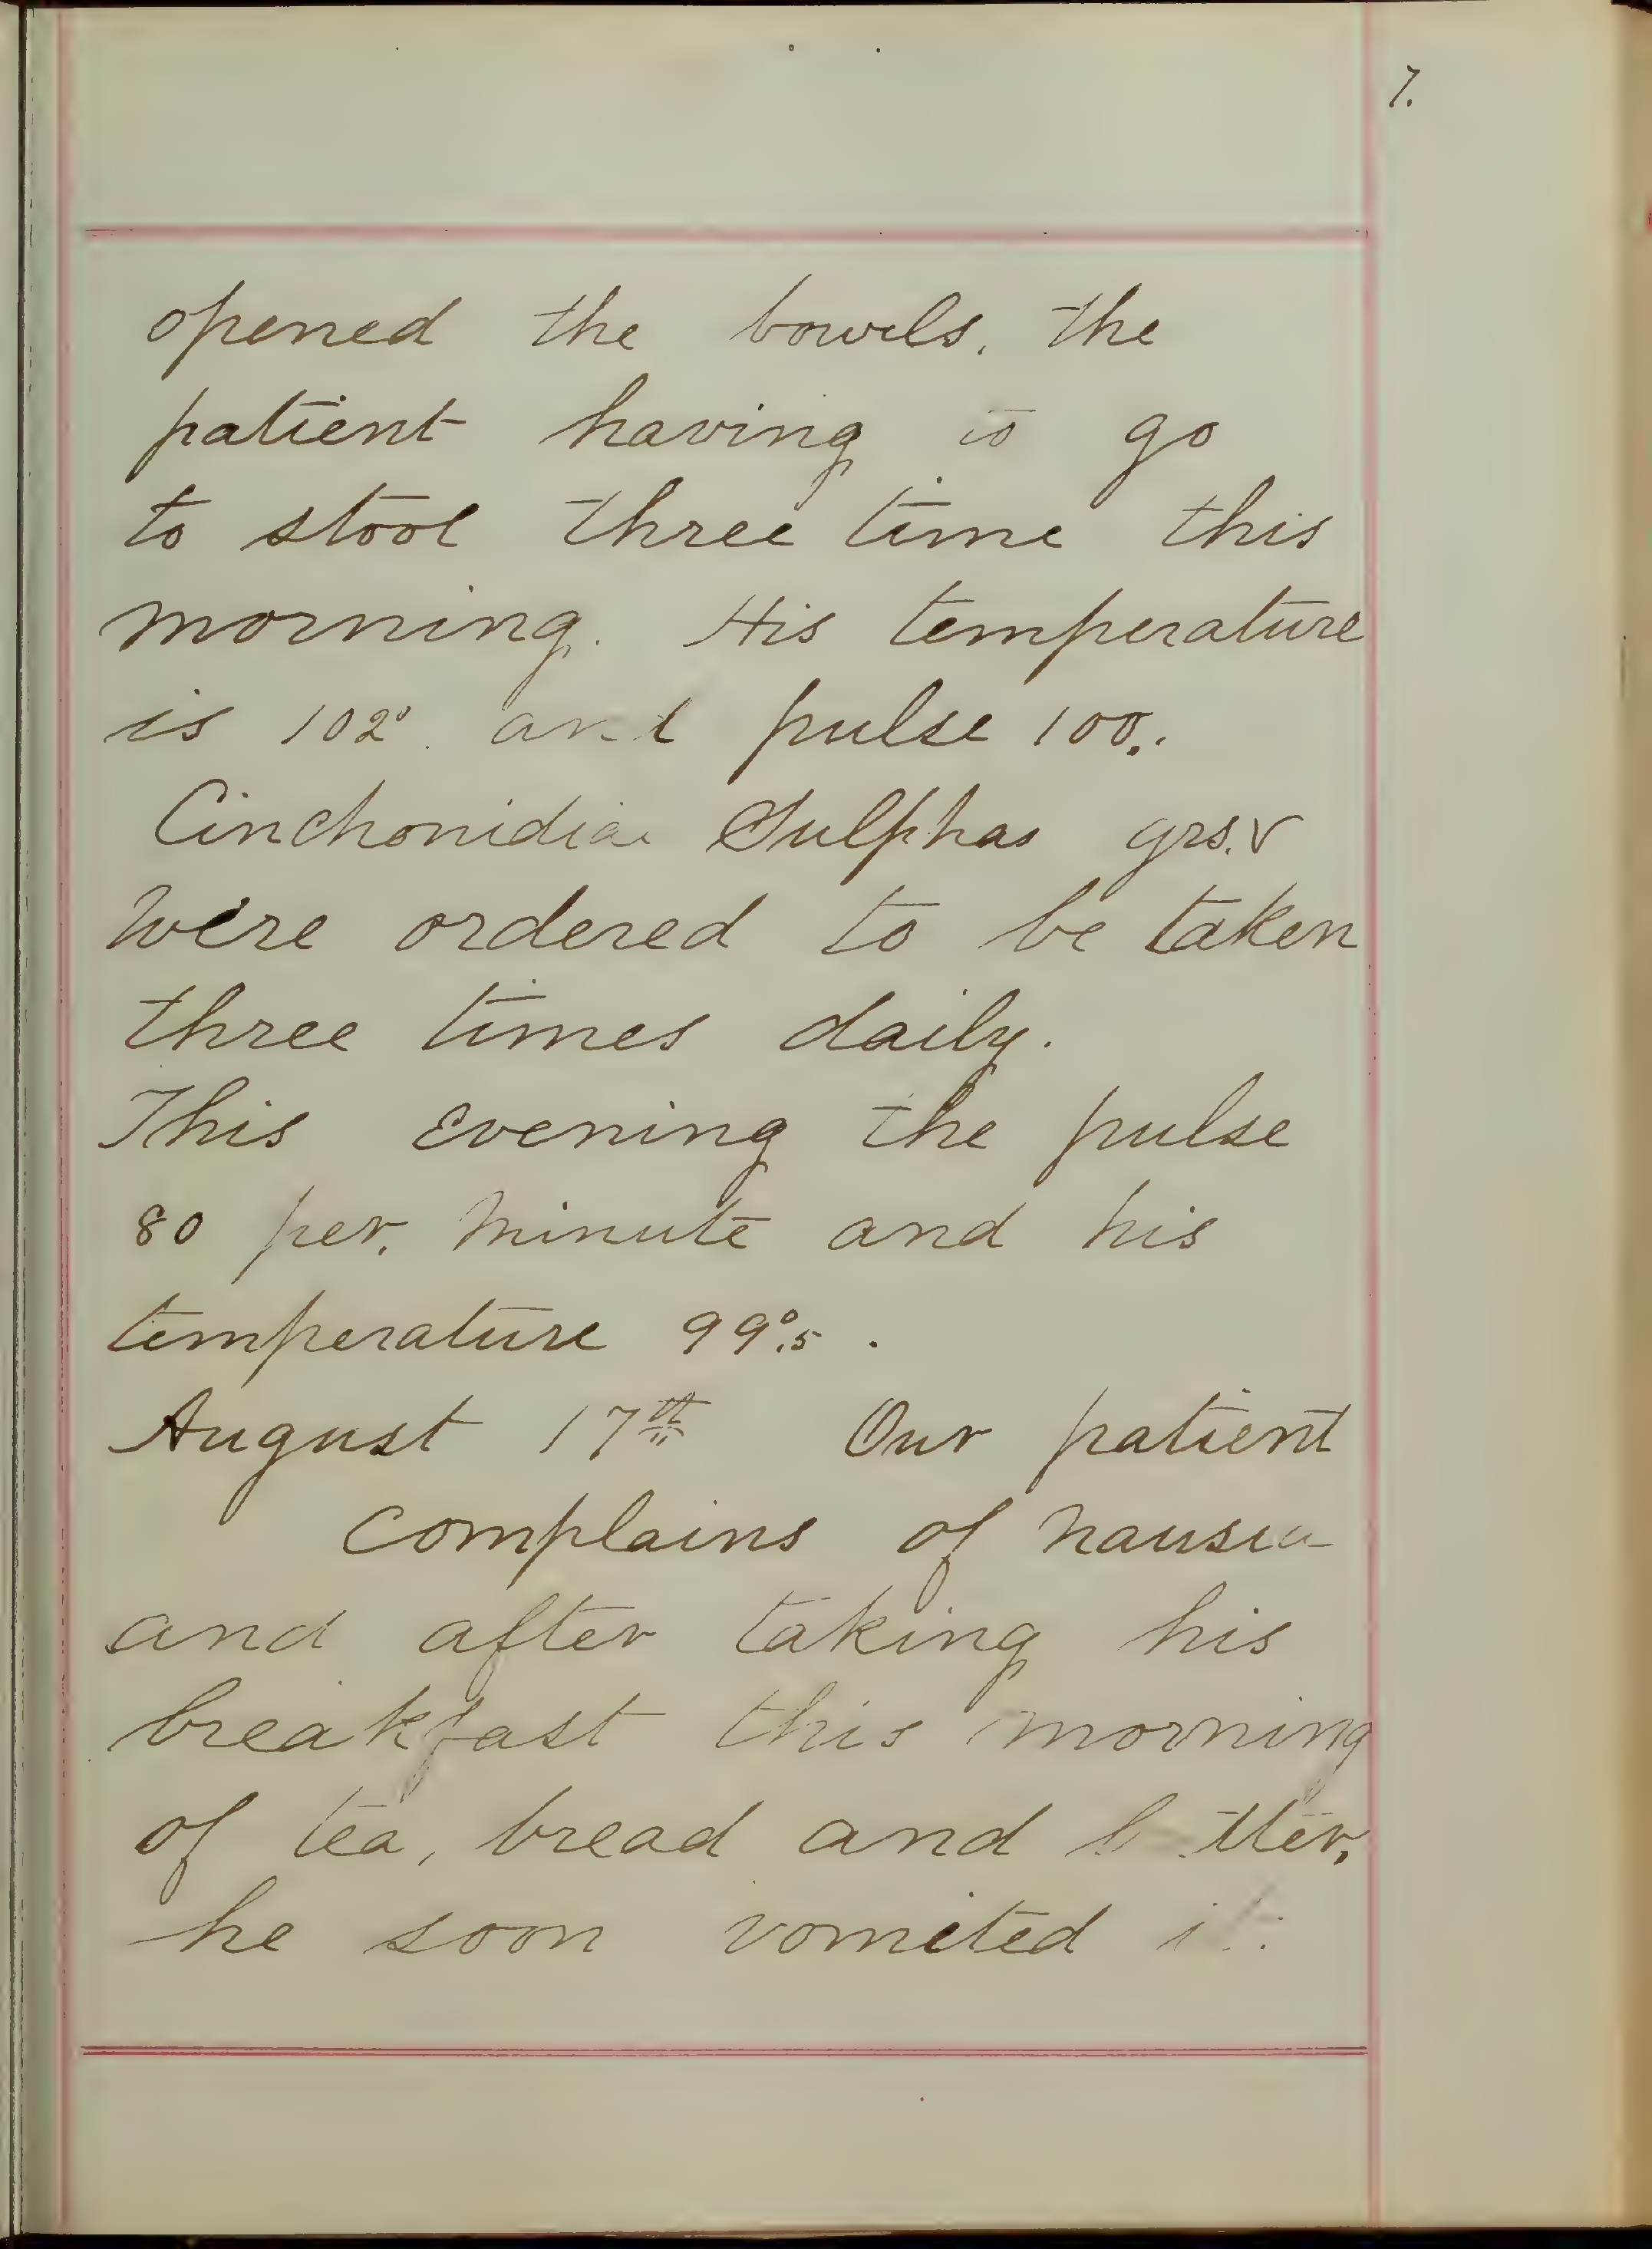 7.
opened the bowels, the
patient having to go
to stool three time this
morning. His temperature
is 102° and pulse 100.
Cinchonidiae Sulphas grs. v
were ordered to be taken
three times daily.
This evening the pulse
80 per. minute and his
temperature 99°.5 .
August 17th Our patient
complains of nausea
and after taking his
breakfast this morning
of tea, bread and butter,
he soon vomited it.